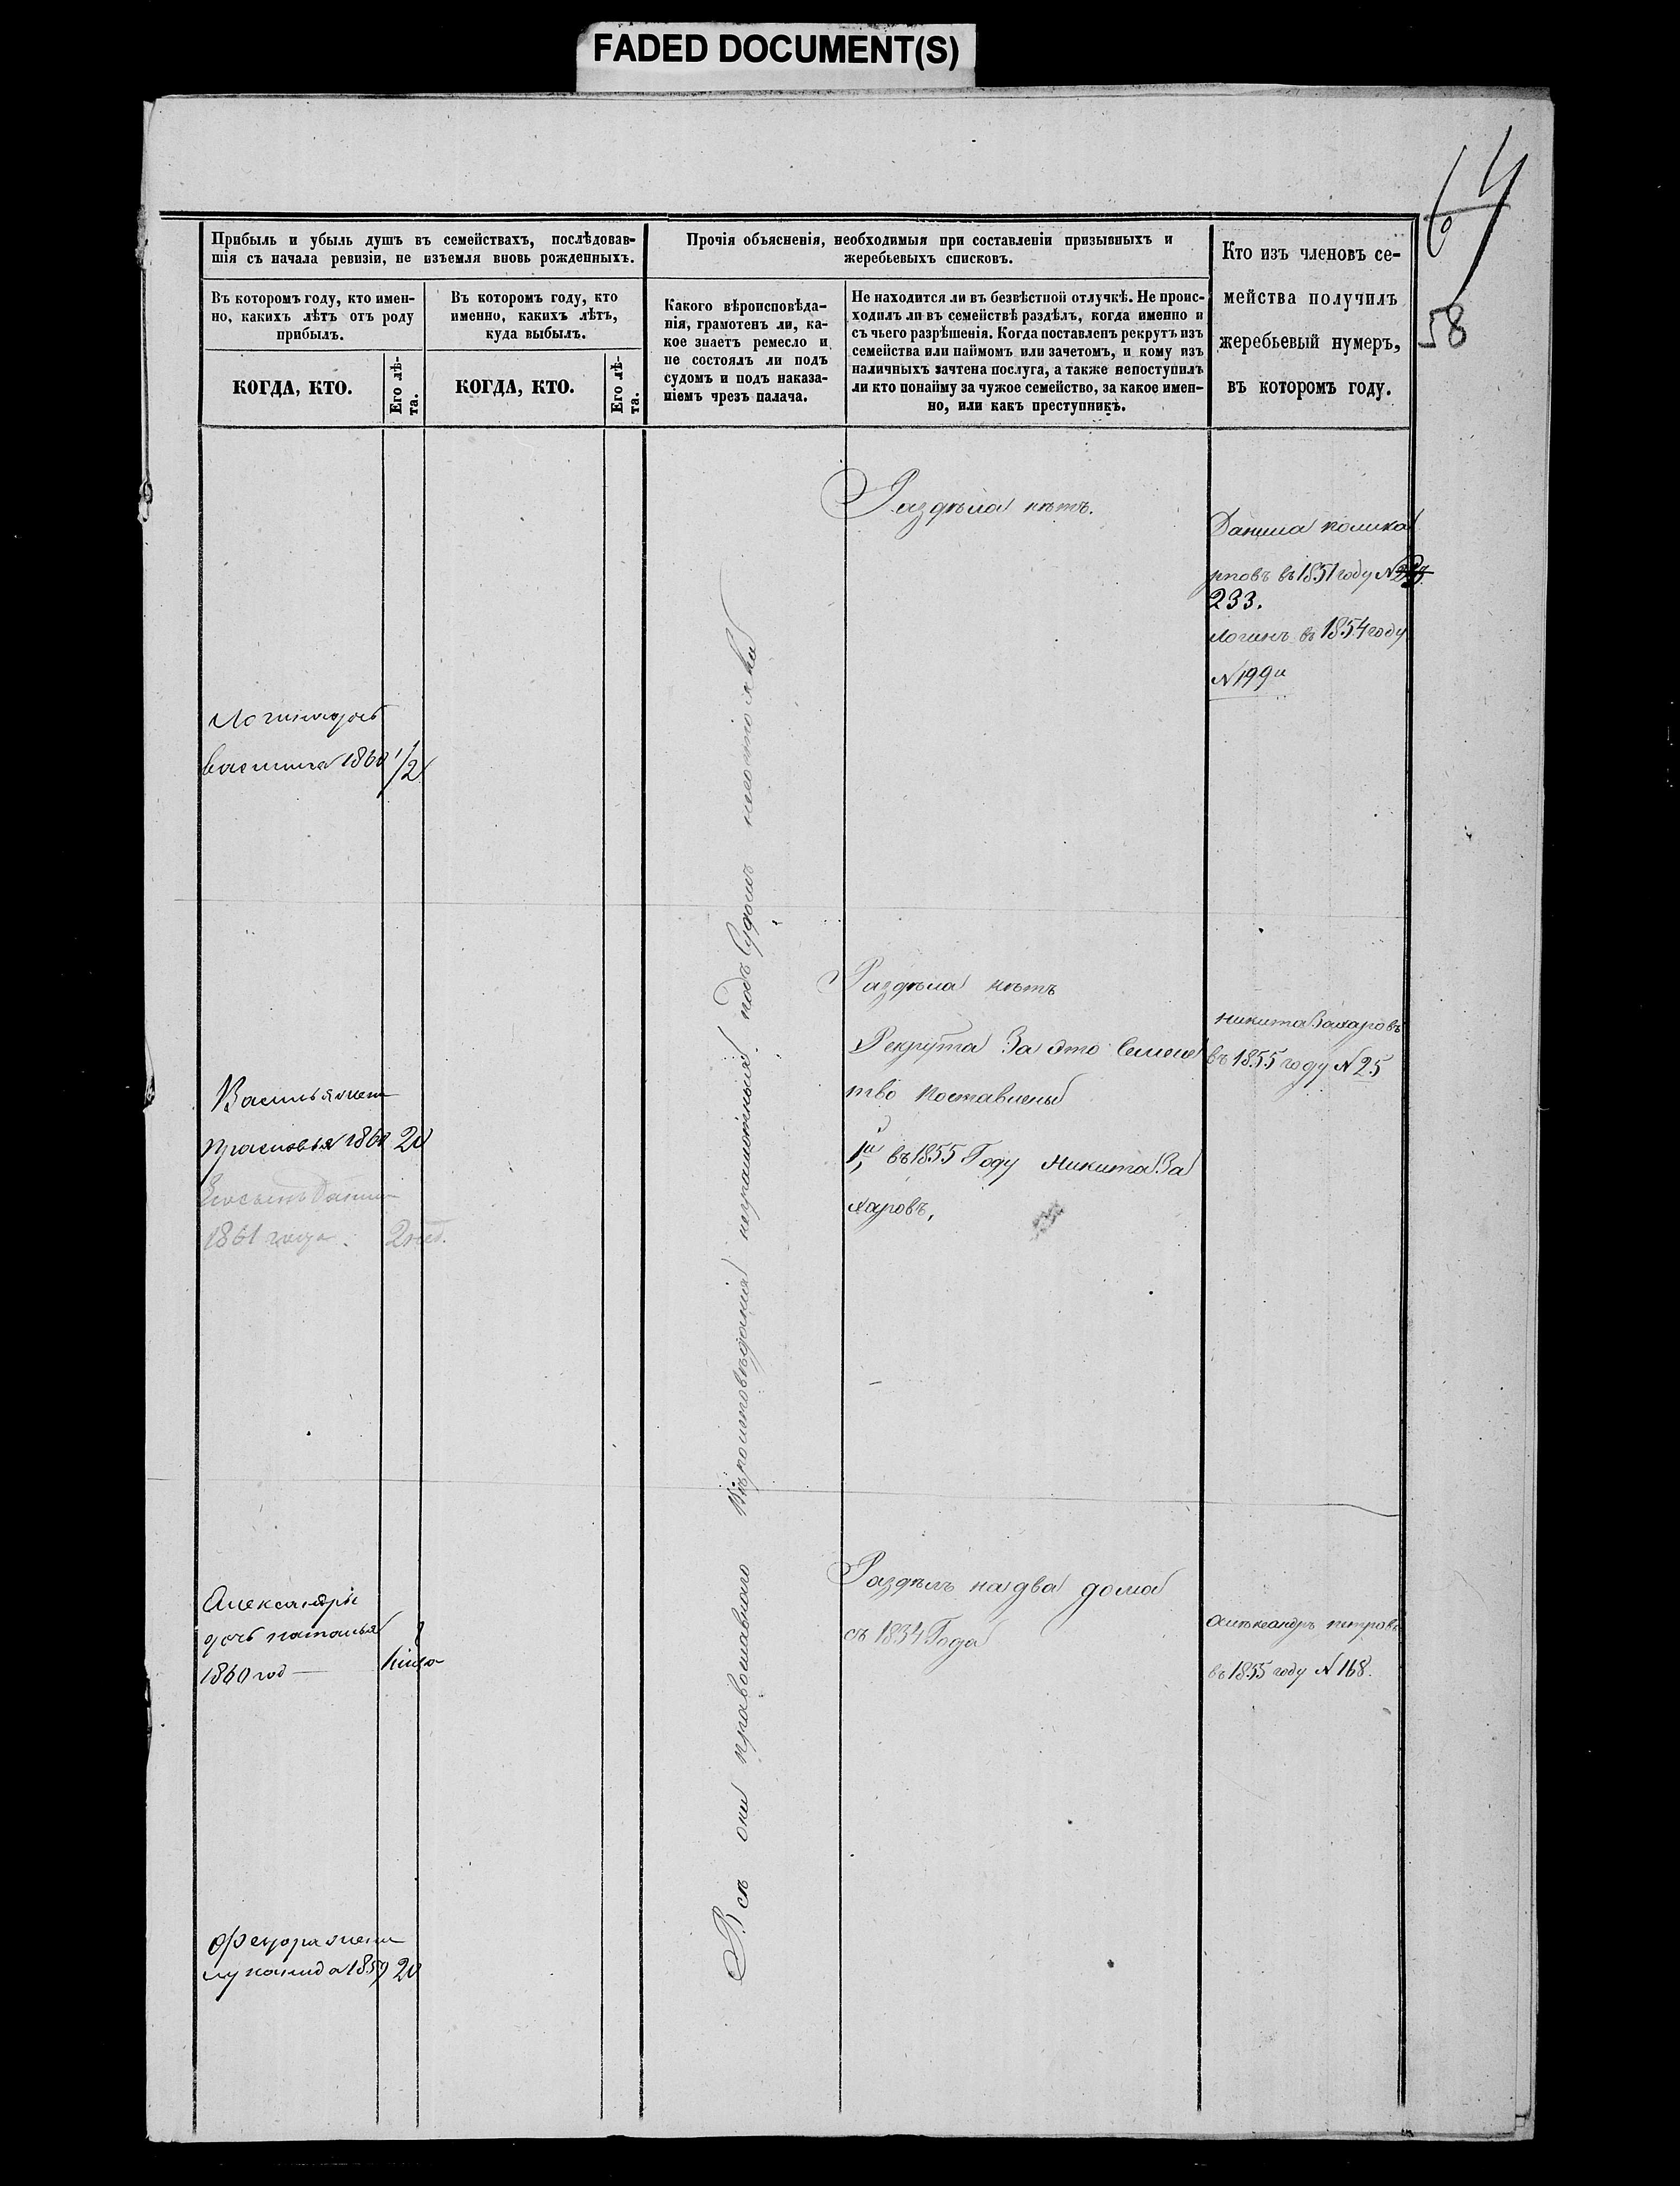 FADED DOCUMENT(S)
64
58
Прибыль и убыль душъ въ семействахъ, послѣдовав-
шія съ начала ревизіи, не изъемля вновь рожденныхъ.
Въ которомъ году, кто имен-
но, какихъ лѣтъ отъ роду
прибылъ.
КОГДА, КТО.
Его лѣ-
та.
Въ которомъ году, кто
именно, какихъ лѣтъ,
куда выбылъ.
КОГДА, КТО.
Его лѣ-
та.
Прочія объясненія, необходимыя при составленіи призывныхъ и
жеребьевыхъ списковъ.
Какого вѣроисповѣда-
нія, грамотенъ ли, ка-
кое знаетъ ремесло и
не состоялъ ли подъ
судомъ и подъ наказа-
ніемъ чрезъ палача.
Не находится ли въ безвѣстной отлучкѣ. Не проис-
ходилъ ли въ семействѣ раздѣлъ, когда именно и
съ чьего разрѣшенія. Когда поставленъ рекрутъ изъ
семейства или наймомъ или зачетомъ, и кому изъ
наличныхъ зачтена послуга, а также непоступилъ
ли кто понайму за чужое семейство, за какое имен-
но, или какъ преступникъ.
Кто изъ членовъ се-
мейства получилъ
жеребьевый нумеръ,
въ которомъ году.
Раздѣла нѣтъ.
Данила полика
рповъ въ 1851 году №
233.
логинъ въ 1854 году
№199й
василиса 1860 1/2
Всѣ они православного вѣроисповѣданія неграмотныя подъ Судомъ несостояли
Раздѣла нѣтъ
Рекрута За это Семейс
тво поставлены
1й въ 1855 Году Никита За
харовъ,
никита Захаровъ
въ 1855 году №25
Василья жена
прасковья 1860 20
Его сынъ Данил
1861 года. 2 нед.
Александры
дочь наталья
1860 год
Раздѣлъ на два дома
съ 1834 Года
алѣксандръ петровъ
въ 1855 году №168.
Федора жена
1859 20